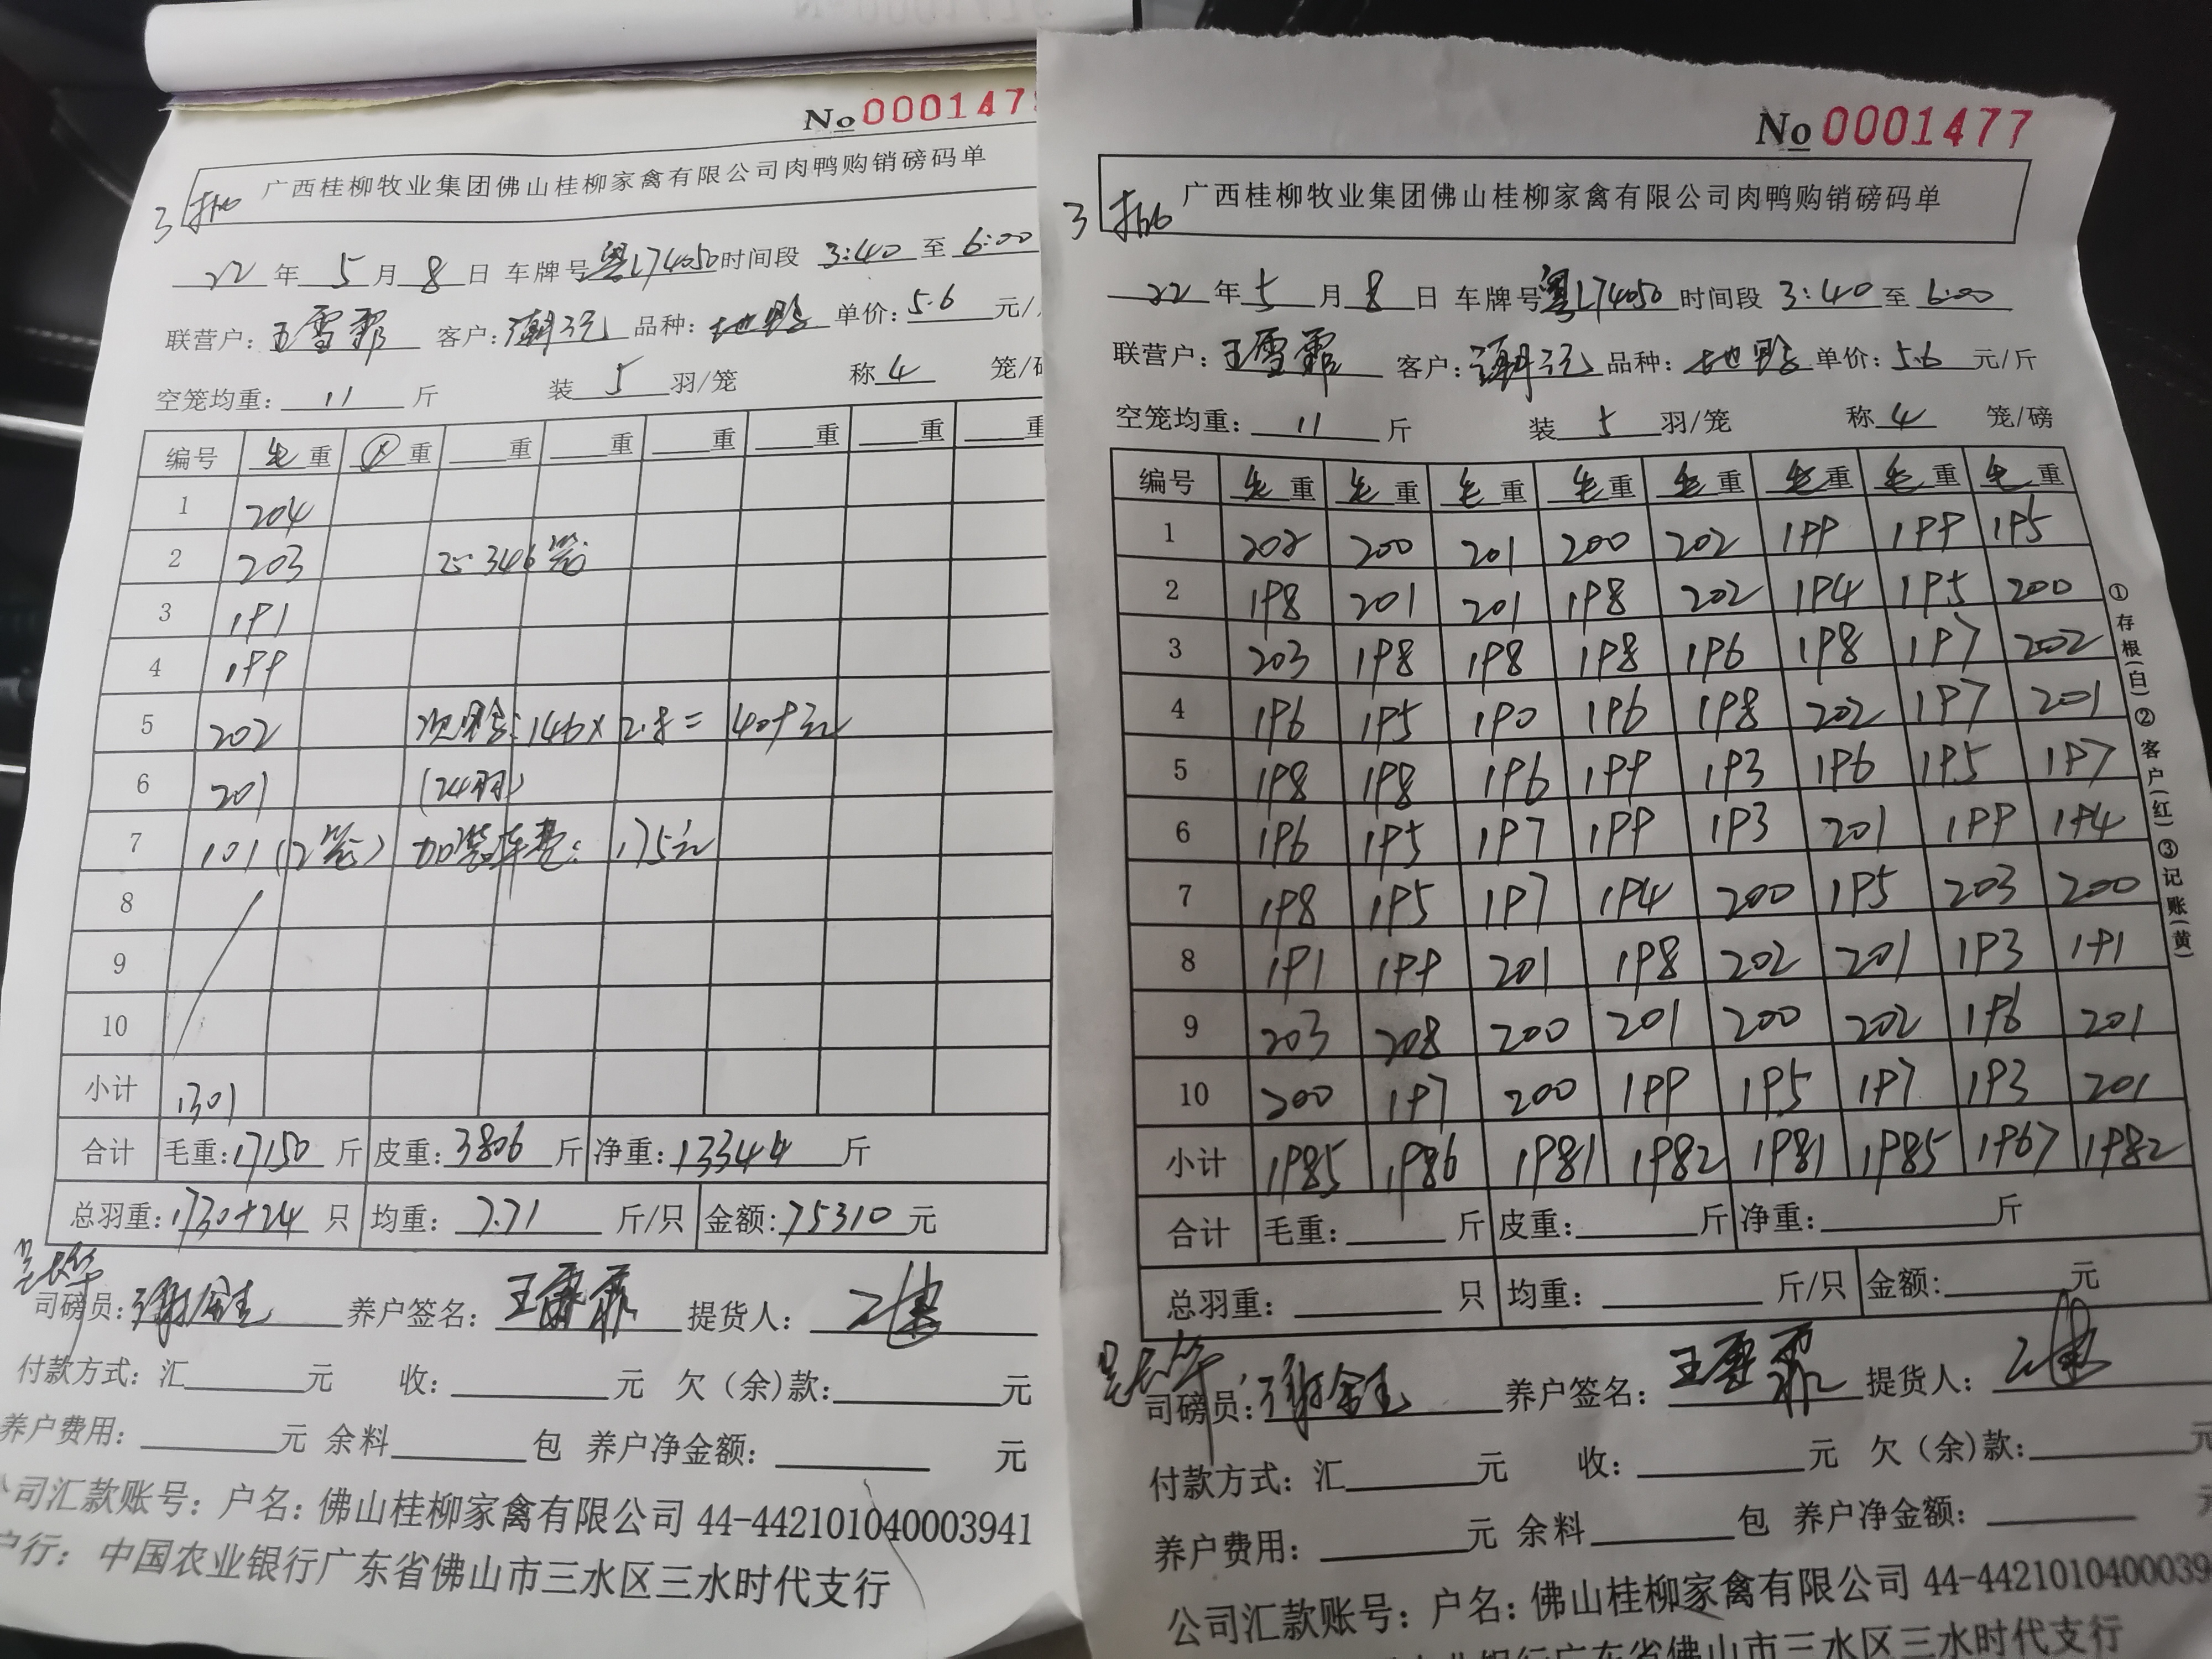 No 000147
广西桂柳牧业集团佛山桂柳家禽有限公司肉鸭购销磅码单
3批
22年5月8日 车牌号粤L74050时间段 3:40至6:00
联营户:王雪霏 客户: 品种: 单价:5.6元/
空笼均重:11斤 装5羽/笼 称4笼/
编号 毛重 重 重 重 重 重 重 重
1 204
2 203 346笼
3 191
4 199
5 202 146×2.8=409元
6 201 (24羽)
7 101(2笼) 加装车费:175元
8
9
10
小计 1301
合计 毛重:17150斤 皮重:3806斤 净重:13344斤
总羽重:1730+24只 均重:7.71斤/只 金额:75310元
司磅员: 养户签名:王雪霏 提货人:
付款方式:汇 元 收: 元 欠(余)款: 元
养户费用: 元 余料 包 养户净金额: 元
公司汇款账号:户名:佛山桂柳家禽有限公司 44-442101040003941
户行:中国农业银行广东省佛山市三水区三水时代支行
No 0001477
广西桂柳牧业集团佛山桂柳家禽有限公司肉鸭购销磅码单
3批
22年5月8日 车牌号粤L74050时间段 3:40至6:00
联营户:王雪霏 客户: 品种: 单价:5.6元/斤
空笼均重:11斤 装5羽/笼 称4笼/磅
编号 毛重 毛重 毛重 毛重 毛重 毛重 毛重 毛重
1 202 200 201 200 202 199 199 195
2 198 201 201 198 202 194 195 200
3 203 198 198 198 196 198 197 202
4 196 195 190 196 198 202 197 201
5 198 198 196 199 193 196 195 197
6 196 195 197 199 193 201 199 194
7 198 195 197 194 200 195 203 200
8 191 199 201 198 202 201 193 191
9 203 208 200 201 200 202 196 201
10 200 197 200 199 195 197 193 201
小计 1985 1986 1981 1982 1981 1985 1967 1982
合计 毛重: 斤 皮重: 斤 净重: 斤
总羽重: 只 均重: 斤/只 金额: 元
司磅员: 养户签名:王雪霏 提货人:
付款方式:汇 元 收: 元 欠(余)款: 元
养户费用: 元 余料 包 养户净金额:
公司汇款账号:户名:佛山桂柳家禽有限公司 44-4421010400039
业银行广东省佛山市三水区三水时代支行
①存根(白)②客户(红)③记账(黄)